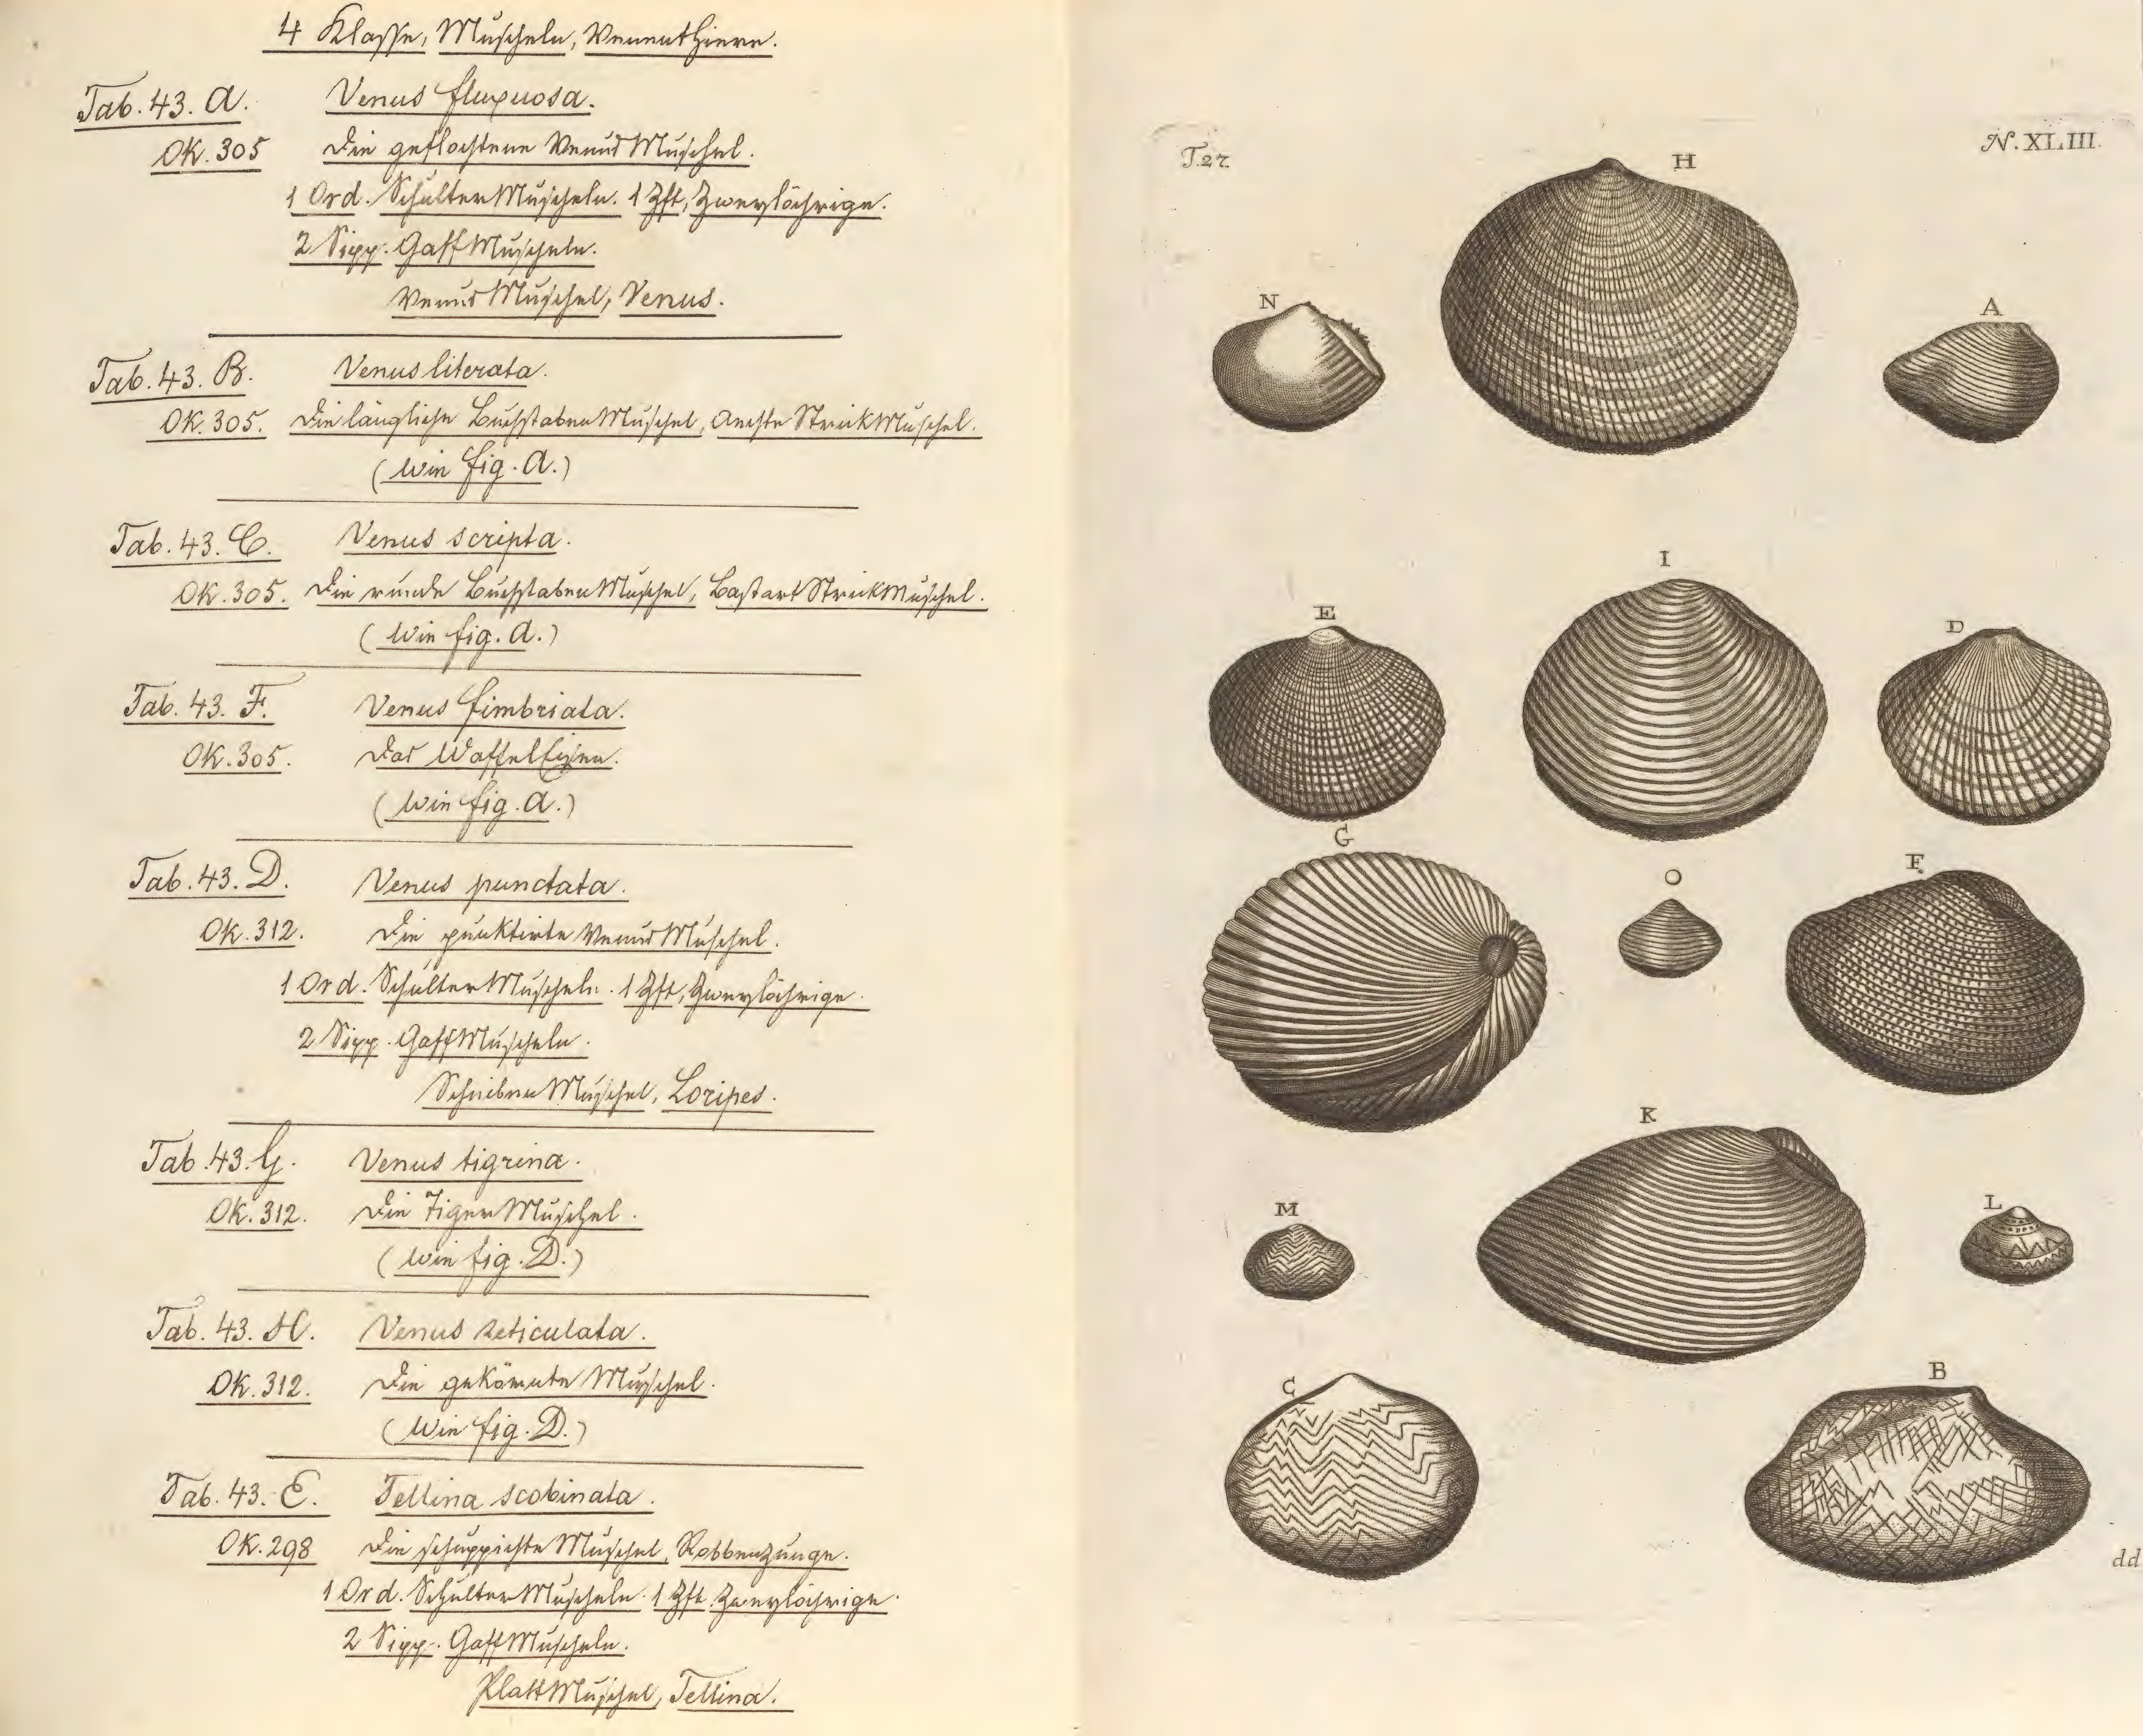 4 Klasse, Muscheln, Venusthiere.
Tab. 43. A. Venus flexuosa.
OK. 305 Die geflochtene VenusMuschel.
1 Ord. SchulterMuscheln. 1 Zft, Zweylöchrige.
2 Sipp. GaffMuscheln.
VenusMuschel, Venus.
Tab. 43. B. Venus literata.
OK. 305. Die längliche BuchstabenMuschel, Aechte StrickMuschel.
(Wie fig. A.)
Tab. 43. C. Venus scripta.
OK. 305. Die runde BuchstabenMuschel, Bastart StrickMuschel.
(Wie fig. A.)
Tab. 43. F. Venus fimbriata.
OK. 305. Das WaffelEisen.
(Wie fig. A.)
Tab. 43. D. Venus punctata.
OK. 312. Die punktirte VenusMuschel.
1 Ord. SchulterMuscheln. 1 Zft, Zweylöchrige.
2 Sipp. GaffMuscheln.
ScheibenMuschel, Loripes.
Tab. 43. G. Venus tigrina.
OK. 312. Die TigerMuschel.
(Wie fig. D.)
Tab. 43. H. Venus reticulata.
OK. 312. Die gekörnte Muschel.
(Wie fig. D.)
Tab. 43. E. Tellina scobinata.
OK. 298 Die schuppichte Muschel, Robbenzunge.
1 Ord. SchulterMuscheln. 1 Zft. Zweylöchrige.
2 Sipp. GaffMuscheln.
PlattMuschel, Tellina.
T. 27.
N. XLIII.
H
N
A
I
E
D
G
O
F
K
M
L
C
B
dd